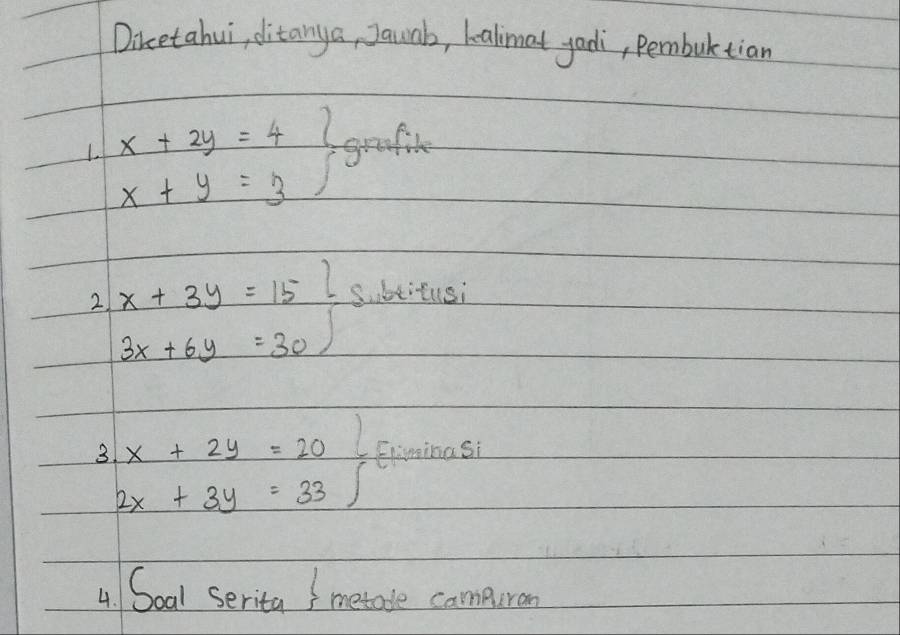 Diketahui, ditanya, Jawab, kalimat yadi, Pembuktian
1. x + 2y = 4 } grafik
x + y = 3
2. x + 3y = 15 } Subtitusi
3x + 6y = 30
3. x + 2y = 20 } Eliminasi
2x + 3y = 33
4. Soal Serita } metode campuran